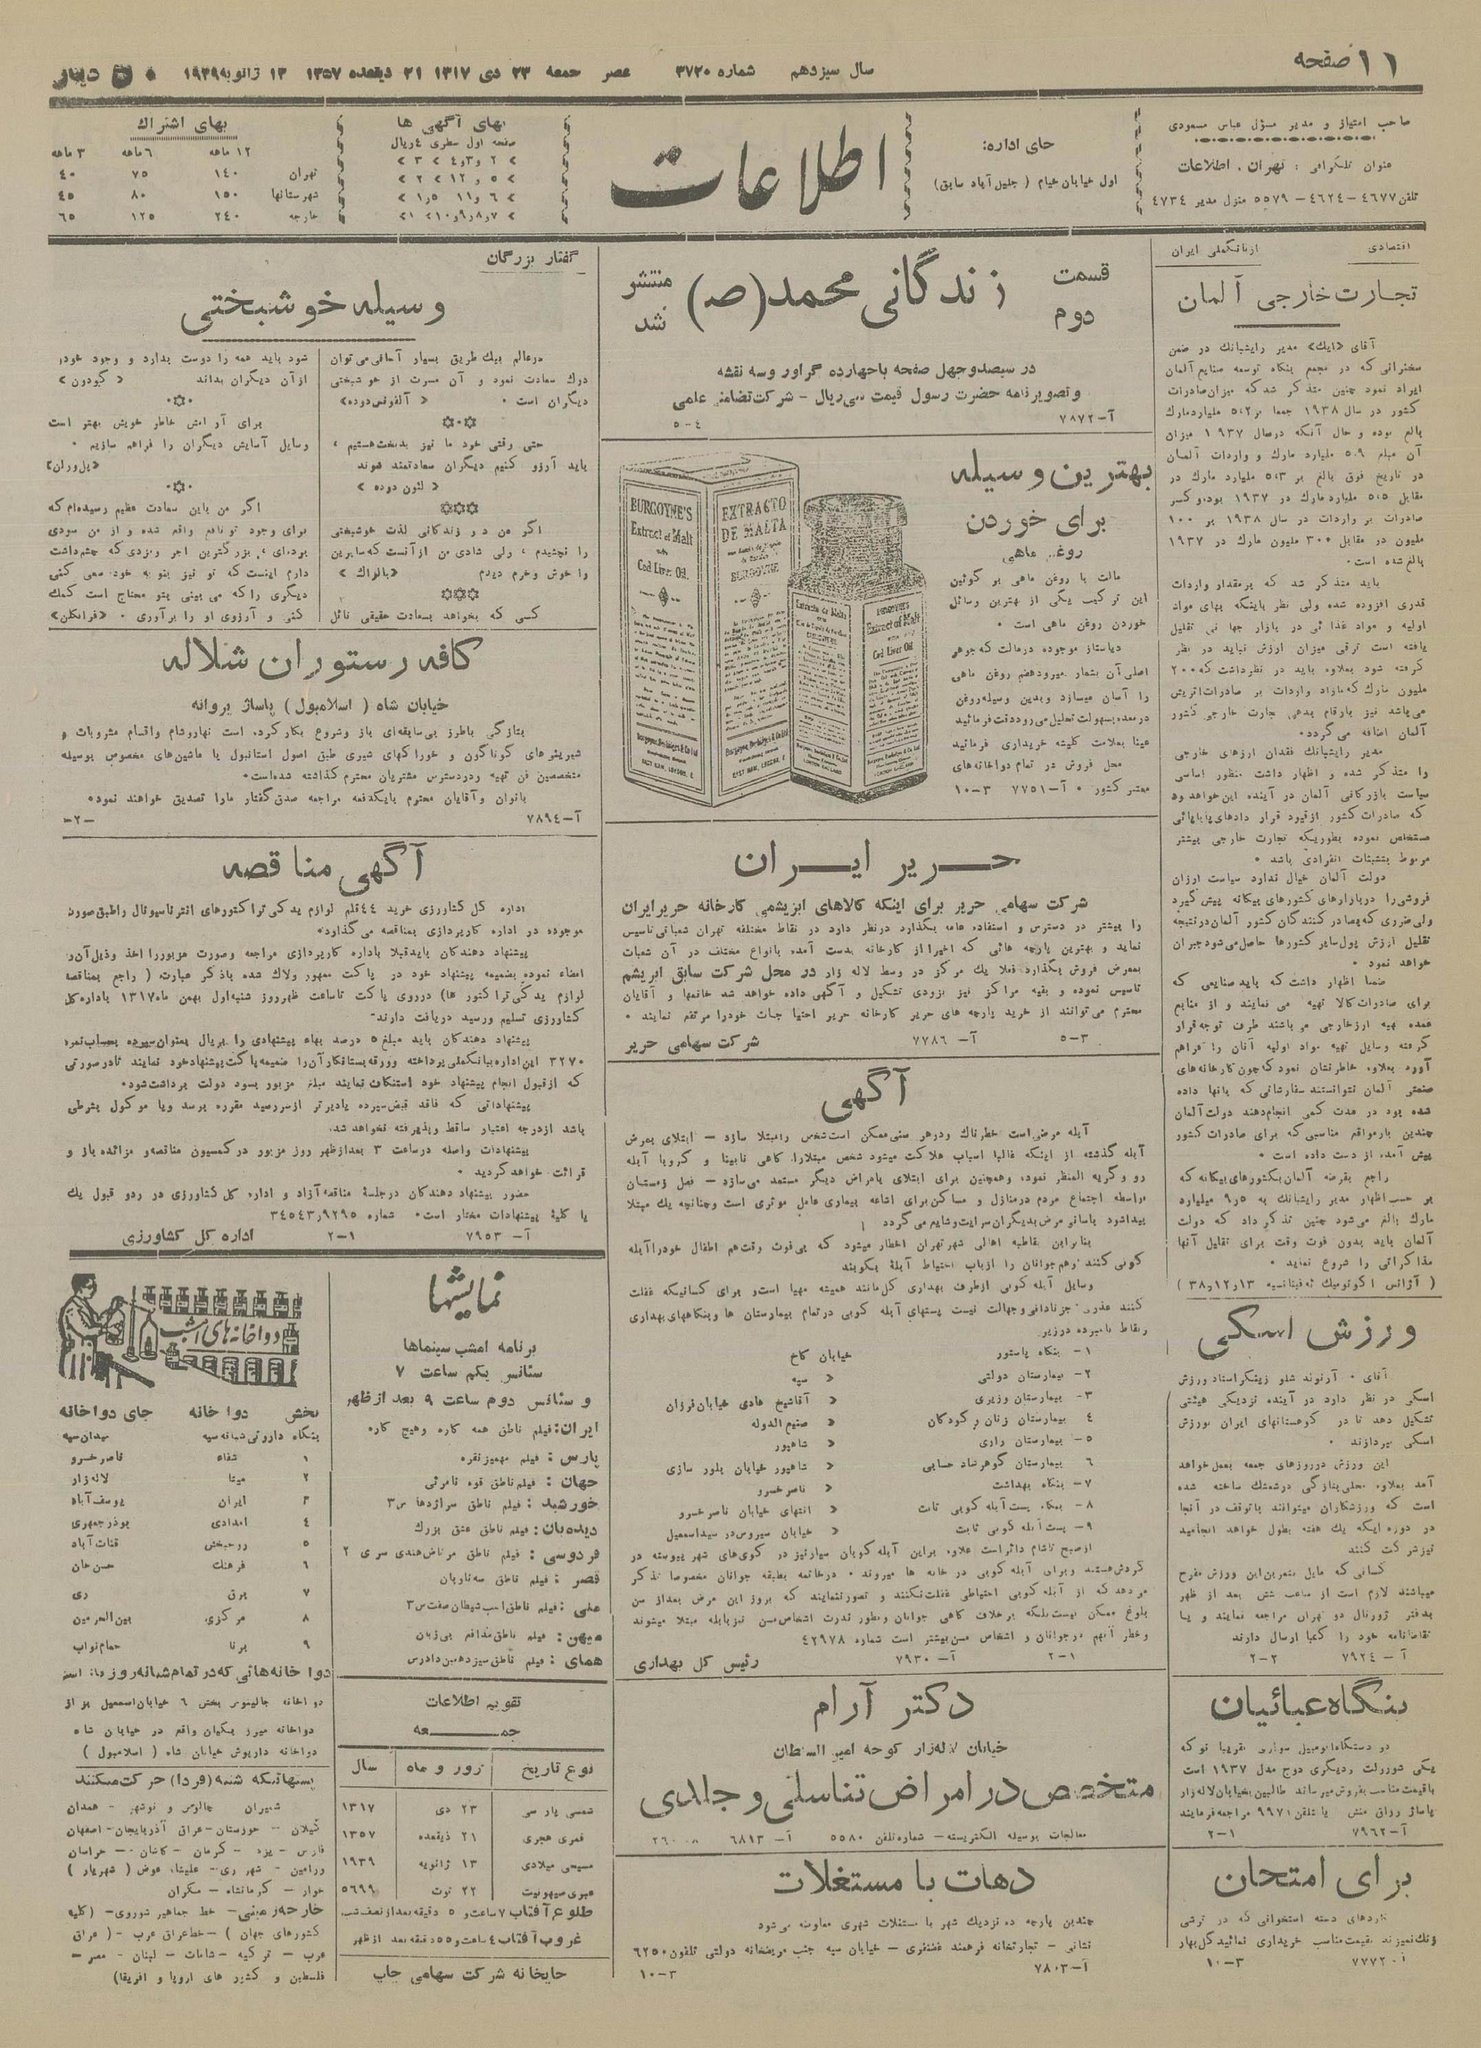 ۱۱ صفحه
سال سیزدهم شماره ۳۷۲۰ عصر جمعه ۲۳ دی ۱۳۱۷ ۲۱ ذیقعده ۱۳۵۷ ۱۳ ژانویه ۱۹۳۹
۵۰ دینار
صاحب امتیاز و مدیر مسؤل عباس مسعودی
عنوان تلگرافی : تهران . اطلاعات
تلفن ۴۶۷۷-۴۶۲۴- ۵۵۷۹ منزل مدیر ۴۷۳۴
جای اداره:
اول خیابان خیام ( جلیل آباد سابق)
اطلاعات
بهای آگهی ها
صفحه اول سطری ۴ ریال
بهای اشتراك
۱۲ ماهه ۶ ماهه ۳ ماهه
تهران ۱۴۰ ۷۵ ۴۰
شهرستانها ۱۵۰ ۸۰ ۴۵
خارجه ۲۴۰ ۱۲۵ ۶۵
اقتصادی
از بانک ملی ایران
تجارت خارجی آلمان
آقای «ایك» مدیر رایشبانك در ضمن
سخنرانی که در مجمع بنگاه توسعه صنایع آلمان
ایراد نمود چنین متذکر شد که میزان صادرات
کشور در سال ۱۹۳۸ جمعا بر ۵٫۲ ملیارد مارك
بالغ بوده و حال آنکه در سال ۱۹۳۷ میزان
آن مبلغ ۵٫۹ ملیارد مارك و واردات آلمان
در تاریخ فوق بالغ بر ۵٫۳ ملیارد مارك در
مقابل ۵٫۵ ملیارد مارك در ۱۹۳۷ بود و کسر
صادرات بر واردات در سال ۱۹۳۸ بر ۱۰۰
ملیون در مقابل ۳۰۰ ملیون مارك در ۱۹۳۷
بالغ شده است .
باید متذکر شد که بر مقدار واردات
قدری افزوده شده ولی نظر باینکه بهای مواد
اولیه و مواد غذائی در بازار جهانی تقلیل
یافته است ترقی میزان ارزش نباید در نظر
گرفته شود بعلاوه باید در نظر داشت که ۲۰۰
ملیون مارك که مازاد واردات بر صادرات اتریش
می باشد نیز بارقام بدهی تجارت خارجی کشور
آلمان اضافه می گردد .
مدیر رایشبانك فقدان ارزهای خارجی
را متذکر شده و اظهار داشت منظور اساسی
سیاست بازرگانی آلمان در آینده این خواهد بود
که صادرات کشور از قیود قرار دادهای پایاپائی
مستخلص نموده بطوریکه تجارت خارجی بیشتر
مربوط بتشبثات انفرادی باشد .
دولت آلمان خیال ندارد سیاست ارزان
فروشی را در بازارهای کشورهای بیگانه پیش گیرد
ولی ضرری که بصادر کنندگان کشور آلمان در نتیجه
تقلیل ارزش پول سایر کشورها حاصل می شود جبران
خواهد نمود .
ضمنا اظهار داشت که باید صنایعی که
برای صادرات کالا تهیه می نمایند و از منابع
عمده تهیه ارز خارجی می باشند طرف توجه قرار
گرفته وسایل تهیه مواد اولیه آنان را فراهم
آورد بعلاوه خاطر نشان نمود که چون کارخانه های
صنعتی آلمان نتوانستند سفارشاتی که بآنها داده
شده بود در مدت کمی انجام دهند دولت آلمان
چندین بار مواقع مناسبی که برای صادرات کشور
پیش آمده از دست داده است .
راجع بقرضه آلمان بکشورهای بیگانه که
بر حسب اظهار مدیر رایشبانك به ۹٫۵ میلیارد
مارك بالغ می شود چنین تذکر داد که دولت
آلمان باید بدون فوت وقت برای تقلیل آنها
مذاکراتی را شروع نماید .
ورزش اسکی
آقای . آرنولد شلو زیشگر استاد ورزش
اسکی در نظر دارد در آینده نزدیکی هیئتی
تشکیل دهد تا در کوهستانهای ایران بورزش
اسکی بپردازند .
این ورزش در روزهای جمعه بعمل خواهد
آمد بعلاوه محلی بتازگی در شمشك ساخته شده
است که ورزشکاران میتوانند با توقف در آنجا
در دوره ایکه یك هفته بطول خواهد انجامید
نیز شرکت کنند
کسانی که مایل بتمرین این ورزش مفرح
میباشند لازم است از ساعت شش بعد از ظهر
بدفتر ژورنال دو تهران مراجعه نمایند و یا
تقاضانامه خود را کتبا ارسال دارند
آ – ۷۹۲۴ ۲-۲
بنگاه عبائیان
دو دستگاه اتومبیل سواری تقریبا نو که
یکی شورولت و دیگری دوج مدل ۱۹۳۷ است
با قیمت مناسب بفروش میرساند طالبین بخیابان لاله زار
پاساژ رزاق منش یا تلفن ۹۹۷۱ مراجعه فرمایند
آ–۷۹۶۲ ۲-۱
برای امتحان
کاردهای دسته استخوانی که در ترشی
زنك نمیزند بقیمت مناسب خریداری نمائید گل بهار
آ–۷۷۷۲ ۱۰-۳
قسمت دوم
زندگانی محمد (ص)
منتشر شد
در سیصد و چهل صفحه با چهارده گراور و سه نقشه
و تصویر نامه حضرت رسول قیمت سی ریال – شرکت تضامنی علمی
آ–۷۸۷۲ ۵-۴
بهترین وسیله
برای خوردن
روغن ماهی
مالت با روغن ماهی بر گوئین
این ترکیب یکی از بهترین وسائل
خوردن روغن ماهی است .
دیاستاز موجوده در مالت که جوهر
اصلی آن بشمار میرود هضم روغن ماهی
را آسان میسازد و بدین وسیله روغن
در معده بسهولت تحلیل می رود دقت فرمائید
عینا بعلامت کلیشه خریداری فرمائید
محل فروش در تمام دواخانه های
معتبر کشور . آ–۷۷۵۱ ۱۰-۳
BURGOYNE'S
Extract of Malt
Cod Liver Oil.
EXTRACTO
DE MALTA
BURGOYNE
Extracto de Malta
Extract of Malt
Cod Liver Oil
حریر ایران
شرکت سهامی حریر برای اینکه کالاهای ابریشمی کارخانه حریر ایران
را بیشتر در دسترس و استفاده عامه بگذارد در نظر دارد در نقاط مختلفه تهران شعباتی تاسیس
نماید و بهترین پارچه هائی که اخیرا از کارخانه بدست آمده بانواع مختلف در آن شعبات
بمعرض فروش بگذارد فعلا یك مرکز در وسط لاله زار در محل شرکت سابق ابریشم
تاسیس نموده و بقیه مراکز نیز بزودی تشکیل و آگهی داده خواهد شد خانمها و آقایان
محترم می توانند از خرید پارچه های حریر کارخانه حریر احتیاجات خود را مرتفع نمایند .
۵-۳ آ– ۷۷۸۶ شرکت سهامی حریر
آگهی
آبله مرضی است خطرناك و در هر سنی ممکن است شخص را مبتلا سازد – ابتلای بمرض
آبله گذشته از اینکه غالبا اسباب هلاکت میشود شخص مبتلا را گاهی نابینا و کر و یا آبله
رو و کریه المنظر نموده و همچنین برای ابتلای بامراض دیگر مستعد می سازد – فصل زمستان
بواسطه اجتماع مردم در منازل و مساکن برای اشاعه بیماری عامل موثری است و چنانچه یك مبتلا
پیدا شود باسانی مرض بدیگران سرایت و شایع می گردد
بنابراین بقاطبه اهالی شهر تهران اخطار میشود که بی فوت وقت هم اطفال خود را آبله
کوبی کنند و هم جوانان را از باب احتیاط آبله بکوبند
وسایل آبله کوبی از طرف بهداری کل مانند همیشه مهیا است و برای کسانیکه غفلت
کنند عذری جز نادانی و جهالت نیست پستهای آبله کوبی در تمام بیمارستان ها و بنگاههای بهداری
و نقاط نامبرده در زیر
۱- بنگاه پاستور خیابان کاخ
۲- بیمارستان دولتی » سپه
۳- بیمارستان وزیری » آقا شیخ هادی خیابان فرزان
۴ بیمارستان زنان و کودکان » صنیع الدوله
۵- بیمارستان رازی » شاهپور
۶ بیمارستان گوهرشاد حسابی » شاهپور خیابان بلور سازی
۷- بنگاه بهداشت » ناصر خسرو
۸- بنگاه پست آبله کوبی ثابت » انتهای خیابان ناصر خسرو
۹- پست آبله کوبی ثابت » خیابان سیروس در سید اسمعیل
از صبح تا شام دائر است علاوه بر این آبله کوبان سیار نیز در کوی های شهر پیوسته در
گردش هستند و برای آبله کوبی در خانه ها میروند . در خاتمه بطبقه جوانان مخصوصا تذکر
می دهد که از آبله کوبی احتیاطی غفلت نکنند و تصور ننمایند که بروز این مرض بعد از سن
بلوغ ممکن نیست بلکه بر خلاف گاهی جوانان و بطور ندرت اشخاص مسن نیز بآبله مبتلا میشوند
و خطر آنهم در جوانان و اشخاص مسن بیشتر است شماره ۴۲۹۷۸
۲-۱ آ– ۷۹۳۰ رئیس کل بهداری
دکتر آرام
خیابان لاله زار کوچه امین السلطان
متخصص در امراض تناسلی و جلدی
معالجات بوسیله الکتریسته – شماره تلفن ۵۵۸۰ آ– ۶۸۱۳
دهات با مستغلات
چندین پارچه ده نزدیك شهر با مستغلات شهری معاوضه می شود
نشانی – تجارتخانه فرهمند غضنفری – خیابان سپه جنب مریضخانه دولتی تلفون ۶۲۵۰
آ–۷۸۰۳ ۱۰-۳
گفتار بزرگان
وسیله خوشبختی
در عالم بیك طریق بسیار آسانی می توان
درك سعادت نمود و آن مسرت از خوشبختی
دیگران است . « آلفونس دوده»
حتی وقتی خود ما نیز بدبخت هستیم ،
باید آرزو کنیم دیگران سعادتمند شوند
« لئون دوده »
اگر من در زندگانی لذت خوشبختی
را نچشیدم ، ولی شادی من از آنست که سایرین
را خوش و خرم دیدم «بالزاك »
کسی که بخواهد بسعادت حقیقی نائل
شود باید همه را دوست بدارد و وجود خود را
از آن دیگران بداند
برای آرامش خاطر خویش بهتر است
وسایل آسایش دیگران را فراهم سازیم .
اگر من باین سعادت عظیم رسیده ام که
برای وجود تو نافع واقع شده و از من سودی
برده ای ، بزرگترین اجر و مزدی که چشم داشت
دارم اینست که تو نیز بنوبه خود سعی کنی
دیگری را که می بینی بتو محتاج است کمك
کنی و آرزوی او را برآوری . «فرانکلن»
کافه رستوران شلاله
خیابان شاه ( اسلامبول ) پاساژ پروانه
بتازگی با طرز بی سابقه ای باز و شروع بکار کرده است نهار و شام و اقسام مشروبات و
شیرینی های گوناگون و خوراکهای شیری طبق اصول استانبول با ماشین های مخصوص بوسیله
متخصصین فن تهیه و در دسترس مشتریان محترم گذاشته شده است .
بانوان و آقایان محترم بایکدفعه مراجعه صدق گفتار ما را تصدیق خواهند نمود .
آ–۷۸۹۴
آگهی مناقصه
اداره کل کشاورزی خرید ۴۴ قلم لوازم یدکی تراکتورهای انترناسیونال را طبق صورت
موجوده در اداره کارپردازی بمناقصه می گذارد .
پیشنهاد دهندگان باید قبلا باداره کارپردازی مراجعه و صورت مزبور را اخذ و ذیل آن را
امضاء نموده بضمیمه پیشنهاد خود در پاکت ممهور و لاك شده با ذکر عبارت ( راجع بمناقصه
لوازم یدکی تراکتور ها) در روی پاکت تا ساعت ظهر روز شنبه اول بهمن ماه ۱۳۱۷ باداره کل
کشاورزی تسلیم و رسید دریافت دارند .
پیشنهاد دهندگان باید مبلغ ۵ درصد بهاء پیشنهادی را بریال بعنوان سپرده بحساب نمره
۳۲۷۰ این اداره ببانك ملی پرداخته و ورقه بستانکار آن را ضمیمه پاکت پیشنهاد خود نمایند تا در صورتی
که از قبول انجام پیشنهاد خود استنکاف نمایند مبلغ مزبور بسود دولت برداشت شود .
پیشنهاداتی که فاقد قبض سپرده یا دیرتر از سررسید مقرره برسد و یا موکول بشرطی
باشد از درجه اعتبار ساقط و پذیرفته نخواهد شد .
پیشنهادات واصله در ساعت ۳ بعد از ظهر روز مزبور در کمسیون مناقصه و مزائده باز و
قرائت خواهد گردید .
حضور پیشنهاد دهندگان در جلسه مناقصه آزاد و اداره کل کشاورزی در رد و قبول یك
یا کلیه پیشنهادات مختار است . شماره ۳۴۵۴۳٫۹۲۹۵
آ– ۷۹۵۳ ۲-۱ اداره کل کشاورزی
نمایشها
برنامه امشب سینماها
سئانس یکم ساعت ۷
و سئانس دوم ساعت ۹ بعد از ظهر
ایران: فیلم ناطق همه کاره و هیچ کاره
پارس : فیلم مهمیز نقره
جهان: فیلم ناطق قوه نامرئی
خورشید : فیلم ناطق سراژدها س۳
دیده بان: فیلم ناطق عشق بزرك
فردوسی: فیلم ناطق مرتاض هندی سری ۲
قصر : فیلم ناطق سه ناویان
ملی: فیلم ناطق اسب شیطان صفت س۳
میهن: فیلم ناطق مدافع بی زبان
همای: فیلم ناطق سیزدهمین دادرس
تقویم اطلاعات
جمعه
نوع تاریخ روز و ماه سال
شمسی پارسی ۲۳ دی ۱۳۱۷
قمری هجری ۲۱ ذیقعده ۱۳۵۷
مسیحی میلادی ۱۳ ژانویه ۱۹۳۹
عبری صیهونیت ۲۲ توت ۵۶۹۹
طلوع آفتاب ۷ ساعت و ۵ دقیقه بعد از نصف شب
غروب آفتاب ۴ ساعت و ۵۵ دقیقه بعد از ظهر
چاپخانه شرکت سهامی چاپ
دواخانه های امشب
بخش دوا خانه جای دواخانه
بنگاه داروئی شبانه سپه میدان سپه
۱ شفاء ناصر خسرو
۲ مینا لاله زار
۳ ایران یوسف آباد
۴ امدادی بوذرجمهری
۵ روحبخش قنات آباد
۶ فرهنك حسن خان
۷ برق ری
۸ مرکزی بین الحرمین
۹ برنا حمام نواب
دواخانه هائی که در تمام شبانه روز باز است
دواخانه جالینوس بخش ۶ خیابان اسمعیل بزاز
دواخانه میرزیکیان واقع در خیابان شاه
دواخانه داریوش خیابان شاه ( اسلامبول )
پستهائیکه شنبه (فردا) حرکت میکنند
شمیران چالوس و نوشهر – همدان
گیلان – خوزستان – عراق آذربایجان – اصفهان
فارس – یزد – کرمان – کاشان – خراسان
ورامین – شهر ری – علیشاه عوض ( شهریار )
خوار – کرمانشاه – مکران
خارجه زمینی – خط جماهیر شوروی – (کلیه
کشورهای جهان ) – خط عراق عرب – ( عراق
عرب – ترکیه – شامات – لبنان – مصر –
فلسطین و کشور های اروپا و افریقا)